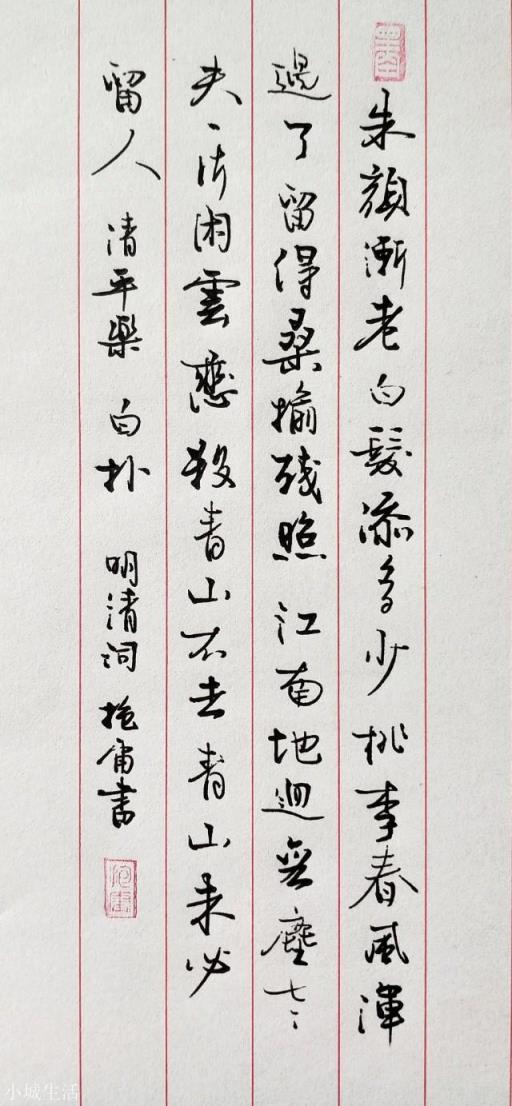 朱顏漸老白髮添多少桃李春風渾
過了留得桑榆殘照 江南地迥無塵老
夫一片閑雲戀殺青山不去青山未必
留人 清平樂 白朴 明清詞 抱庸書
小城生活